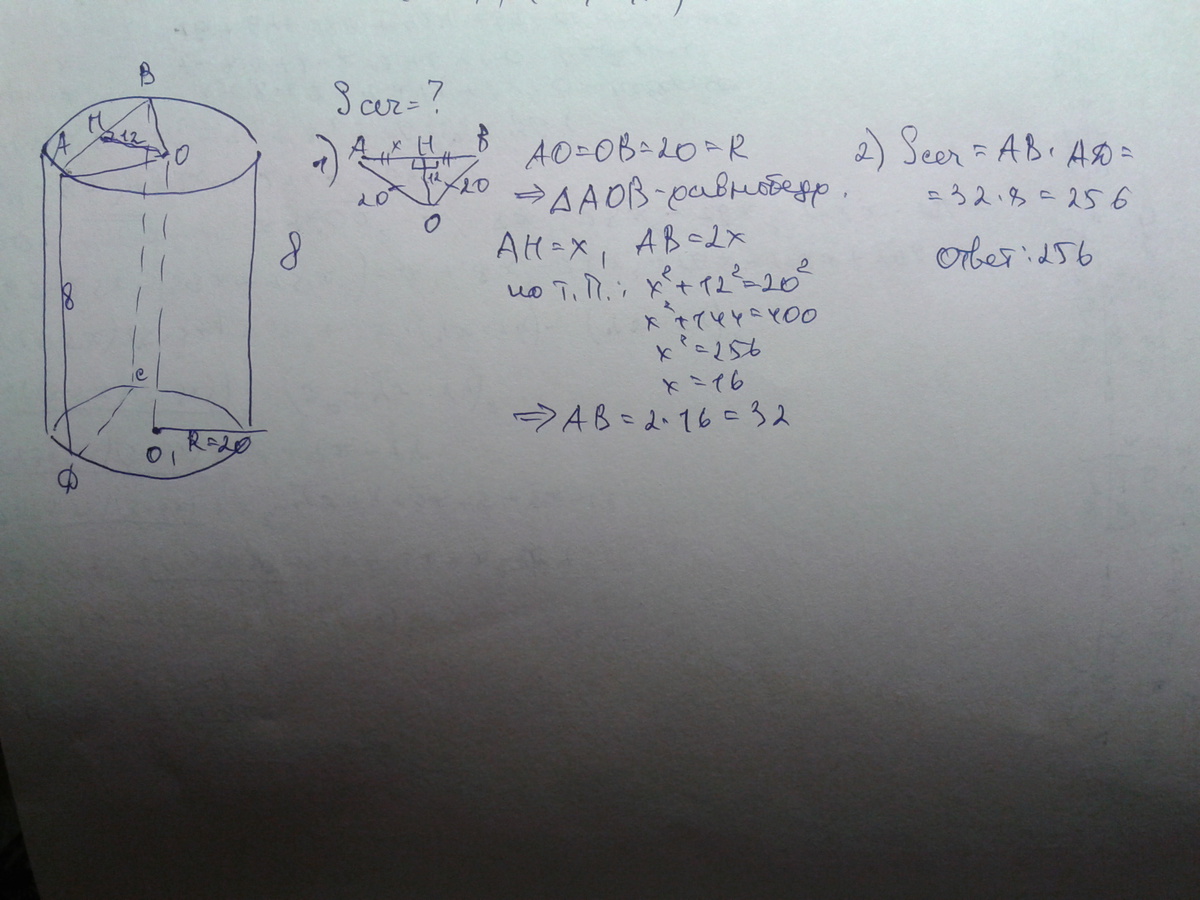 B
H
A
12
O
8
8
C
O₁
R=20
D
Sсеч=?
1)
A x H B
20 12 20
O
AO=OB=20=R
⇒ΔAOB-равнобедр.
AH=x, AB=2x
по т.П.: x²+12²=20²
x²+144=400
x²=256
x=16
⇒AB=2·16=32
2) Sсеч=AB·AD=
=32·8=256
Ответ:256